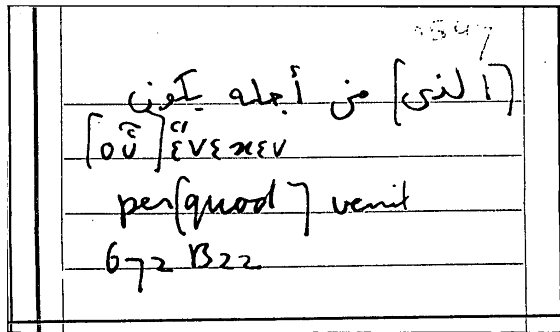 [الذى] من أجله يكون
[οὗ] ἕνεκεν
per [quod] venit
672 B22